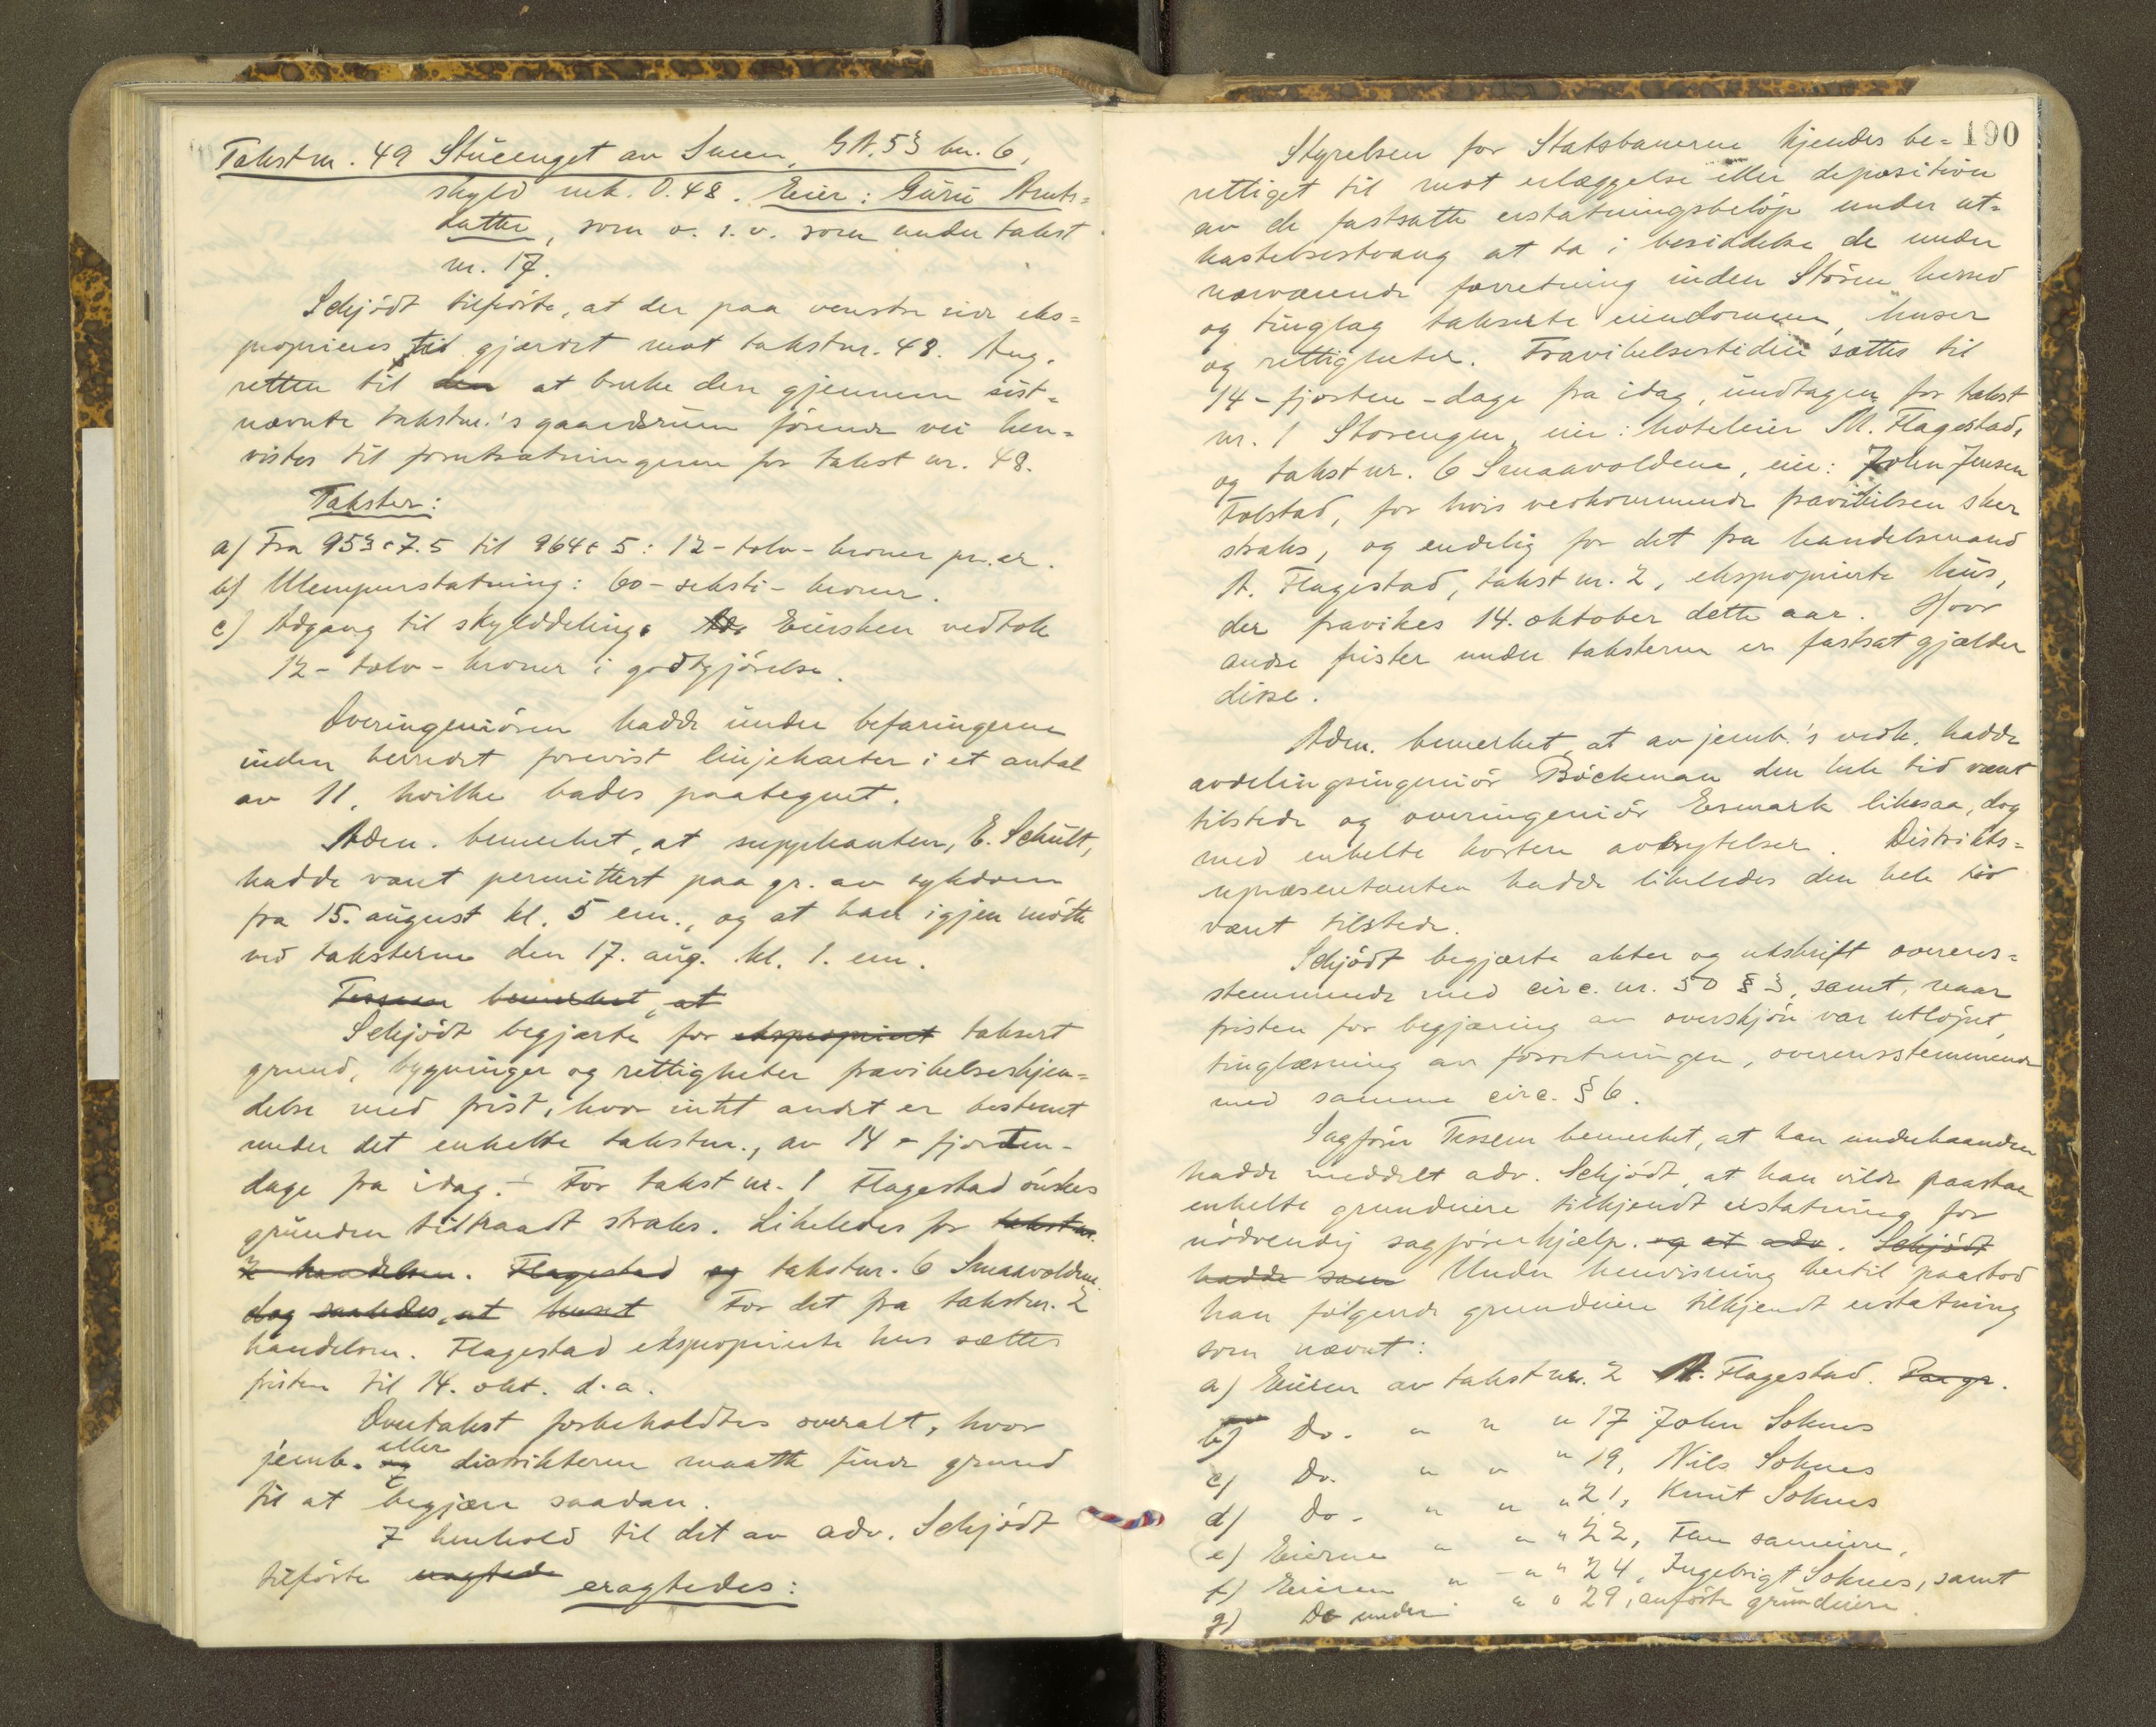 Takstnr. 49 Stueenget av Sneen, GN. 53 bn. 6,
skyld mk. 0.48. Eier: Guru Arnts=
datter, som o. s. v. som under takst
nr. 17.
Schjödt tilförte, at der paa venstre side eks=
proprieres til gjerdet mot takstnr. 48. Ang.
retten til den at bruke den gjennem sist=
nævnte takstnr.'s gaardsrum förende vei hen=
vistes til forutsætningerne for takst nr. 48.
Takster:
a) Fra 953 + 7.5 til 964 + 5: 12 - tolv - kroner pr. ar.
b) Ulempeerstatning: 60 - seksti - kroner.
c) Adgang til skylddeling. Ad. Eiersken vedtok
12 - tolv - kroner i godtgjörelse.
Overingeniören hadde under befaringerne
inden herredet forevist linjekarter i et antal
av 11, hvilke bades paategnet.
Adm. bemerket, at suppleanten, E. Schult,
hadde været permittert paa gr. av sykdom
fra 15. august kl. 5 em., og at han igjen mötte
ved taksterne den 17. aug. kl. 1. em.
Tessem bemerket, at
Schjödt begjærte for ekspropriert taksert
grund, bygninger og rettigheter fravikelseskjen=
delse med frist, hvor intet andet er bestemt
under det enkelte takstnr., av 14 - fjorten -
dage fra idag. - For takst nr. 1 Flagestad önskes
grunden tiltraadt straks. Likeledes for takstnr.
2 handelsm. Flagestad og takstnr. 6 Smaavoldene.
dog saaledes, at huset For det fra takstnr. 2
handelsm. Flagestad eksproprierte hus sættes
fristen til 14. okt. d. a.
Overtakst forbeholdtes overalt, hvor
jernb. og eller distrikterne maatte finde grund
til at begjære saadan.
I henhold til det av adv. Schjödt
tilförte eragtede eragtedes:
190
Styrelsen for Statsbanerne kjendes be=
rettiget til mot erlæggelse eller deposition
av de fastsatte erstatningsbelöp under ut=
kastelsestvang at ta i besiddelse de under
nærværende forretning inden Stören herred
og tinglag takserte eiendommer, huser
og rettigheter. Fravikelsestiden sættes til
14 - fjorten - dage fra idag, undtagen for takst
nr. 1 Storengen, eier: hoteleier M. Flagestad,
og takst nr. 6 Smaavoldene, eier: John Jensen
Folstad, for hvis vedkommende fravikelsen sker
straks, og endelig for det fra handelsmand
A. Flagestad, takst nr. 2, ekspropierte hus,
der fravikes 14. oktober dette aar. Hvor
andre frister under taksterne er fastsat gjælder
disse.
Adm. bemerket, at av jernb.'s vedk. hadde
avdelingsingeniör Böckman den hele tid været
tilstede og overingeniör Esmark likesaa, dog
med enkelte kortere avbrytelser. Distrikts=
repræsentanten hadde likeledes den hele tid
været tilstede.
Schjödt begjærte akter og utskrift overens=
stemmende med circ. nr. 50 § 3, samt, naar
fristen for begjæring av overskjön var utlöpet,
tinglæsning av forretningen, overensstemmende
med samme circ. § 6.
Sagförer Tessem bemerket, at han underhaanden
hadde meddelt adv. Schjödt, at han vilde paastaa
enkelte grundeiere tilkjendt erstatning for
nödvendig sagförerhjælp. og at adv. Schjödt
hadde sam Under henvisning hertil paastod
han fölgende grundeiere tilkjendt erstatning
som nævnt:
a) Eieren av takst nr. 2 A. Flagestad. Paa gr.
b) Do. " " " 17 John Soknes
c) Do. " " " 19, Nils Soknes
d) Do. " " " 21, Knut Soknes
e) Eierne " " " 22, Fem sameiere,
f) Eieren " " " 24, Ingebrigt Soknes, samt
g) Do under " " 29, anförte grundeiere